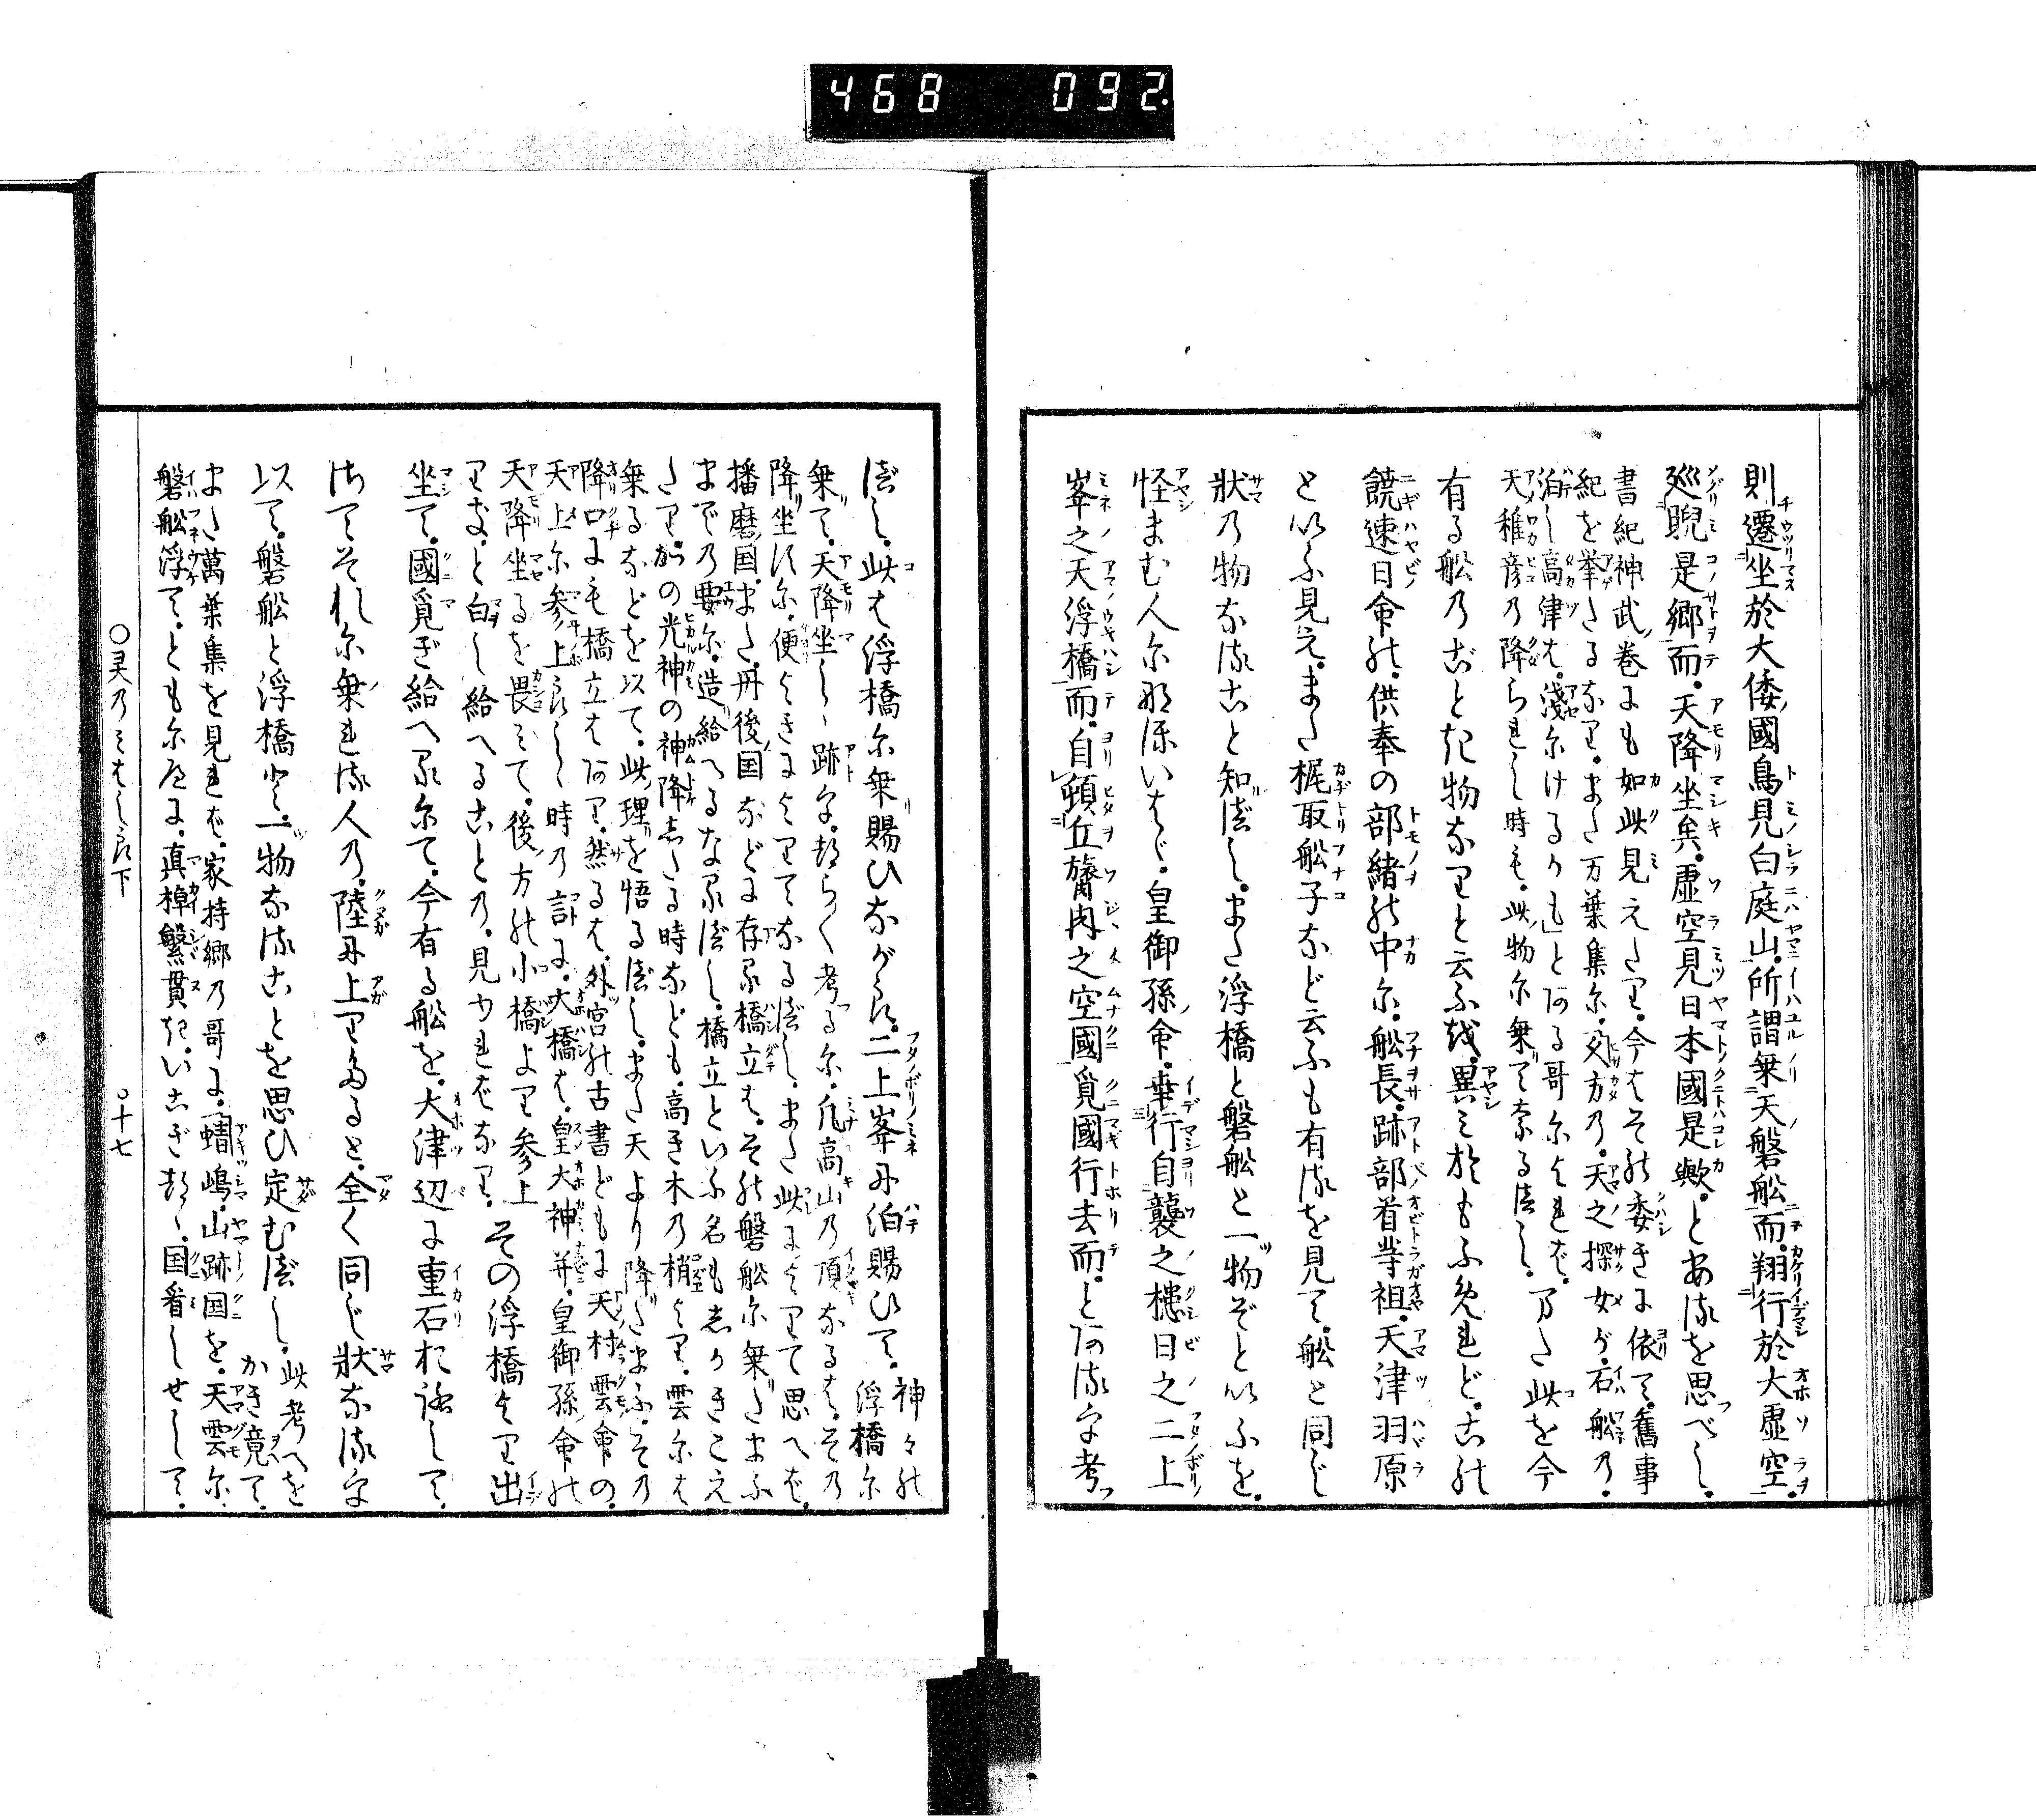 468 092
則遷坐於大倭國鳥見白庭山所謂乗天磐舩而翔行於大虚空
廵睨是郷而天降坐矣虚空見日本國是歟とある を思べし
書紀神武巻にも如此見えたり今はその委きに依て舊事
紀を挙たるなり また万葉集に久方の天之探女が石舩の
泊し高津は淺にけるかもとある哥によれば
天稚彦の降られし時も此物に乗て奈る べし 乃た此を今
有る舩のごとき物なりと云ふ 異しみおもふめれどこの
饒速日命の供奉の部緒の中に舩長跡部首等祖天津羽原
といふ見えまた梶取舩子など云ふも有るを見て舩と同じ
狀の物なることと知べしまた浮橋と磐舩と一物ぞといふを
怪まむ人になほいはゞ皇御孫命 行自襲之槵日之二上
峯之天浮橋而自頓丘膂肉之空國覓國行去而とあるを考ふ
べし此は浮橋に乗賜ひながら二上峯に泊賜ひて 神々の浮橋に
乗て天降坐し跡を つらく考るに凡高山の頂なるはその
降坐すに便よきによりてなるべしまた此によりて思へば
播磨国また丹後国などに存る橋立はその磐舩に乗たまふ
までの要に造給へるなるべし橋立といふ名もしかきこえ
たり かの光神の神降したる時なども高き木の梢より雲には
乗るなどを以て此理を悟るべし また天より降たまふその
降口にも橋立はあり 然るは外宮の古書どもに天村雲命の
天上に参上らしゝ時の言に大橋は皇大神并皇御孫命の
天降坐るを畏みて後方の小橋より参上
りき と白し給へることの見ゆればなり その浮橋より出
坐て國覓ぎ給へるにて今有る舩を大津辺に重石おろして
さてそれに乗れる人の陸に上りたると全く同じ狀なるを
以て磐舩と浮橋と一物なることを思ひ定むべし 此考へを かき竟て
また萬葉集を見れば家持郷の哥に蜻嶋山跡国を天雲に
磐舩浮てともにへに真櫂繁貫いこぎつゝ国看しせして
○霊乃みはしら下 ○十七